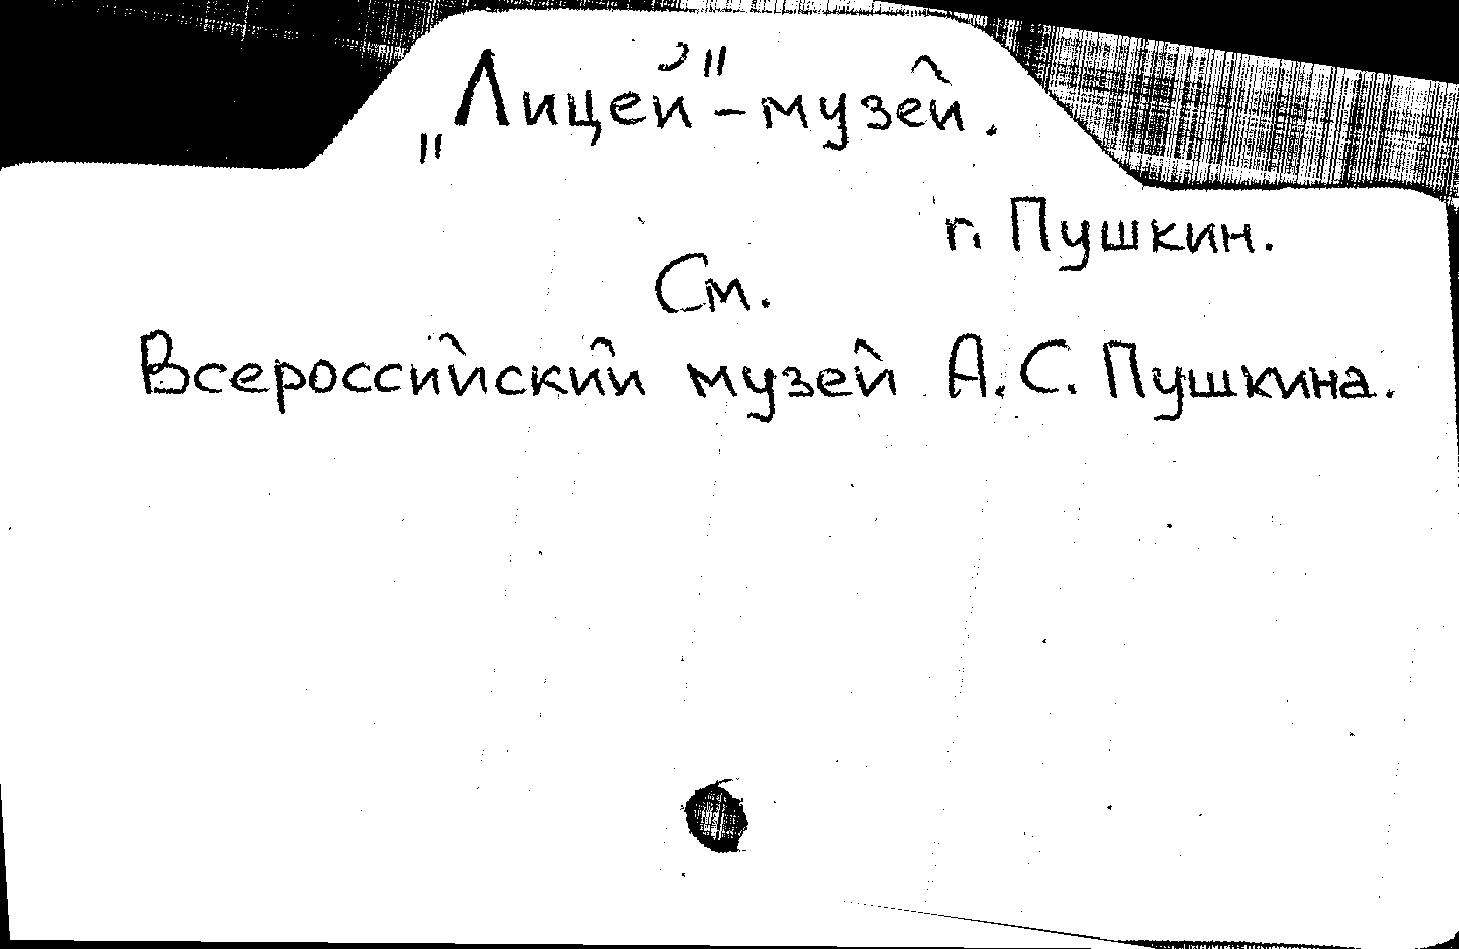 „Лицей"-музей.
г. Пушкин.
См.
Всероссийский музей А.С. Пушкина.